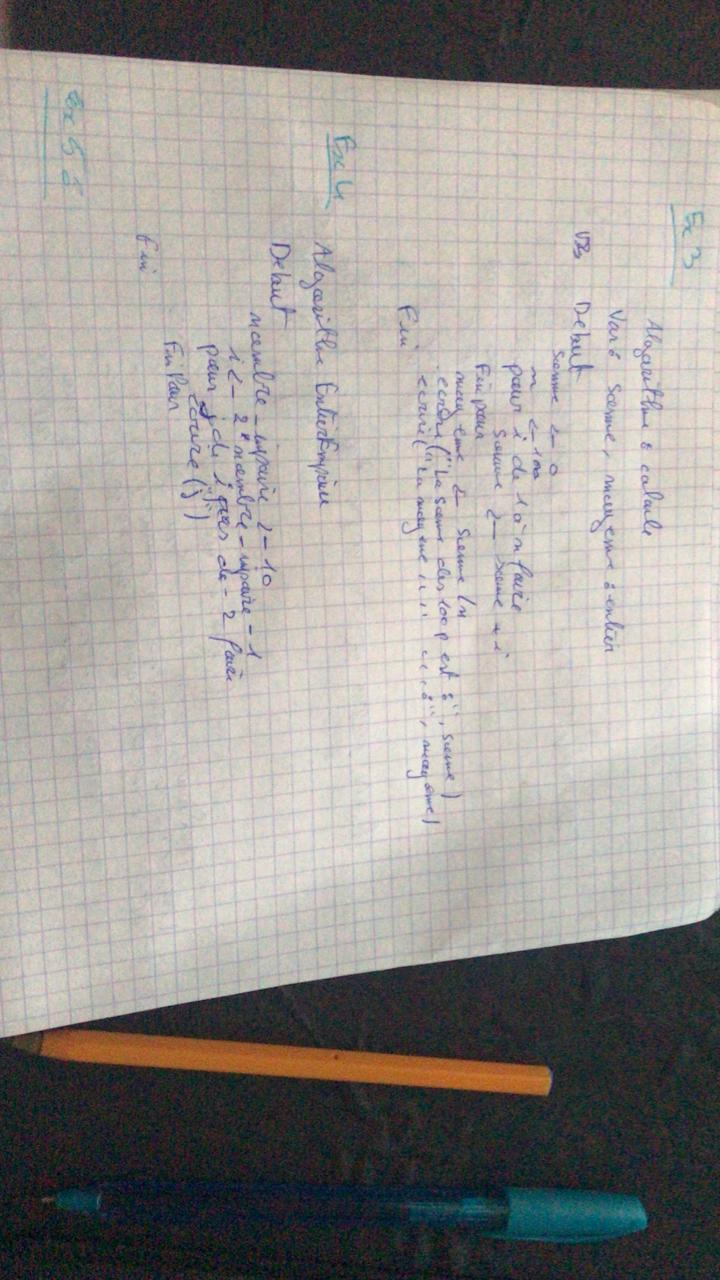 Ex 3
Algorithme : calcule
Var : Somme, moyenne : entier
Debut
Somme <- 0
n <- 100
pour i de 1 à n faire
Somme <- Somme + i
Fin pour
moyenne <- Somme / n
ecrire ("La somme des 100 p est : ", somme)
ecrire ("La moyenne " " " " : ", moyenne)
Fin
Ex 4
Algorithme EntierImpaire
Debut
nombre-impaire <- 10
i <- 2*nombre-impaire - 1
pour j de i pas de - 2 faire
ecrire (j)
Fin Pour
Fin
Ex 5 :